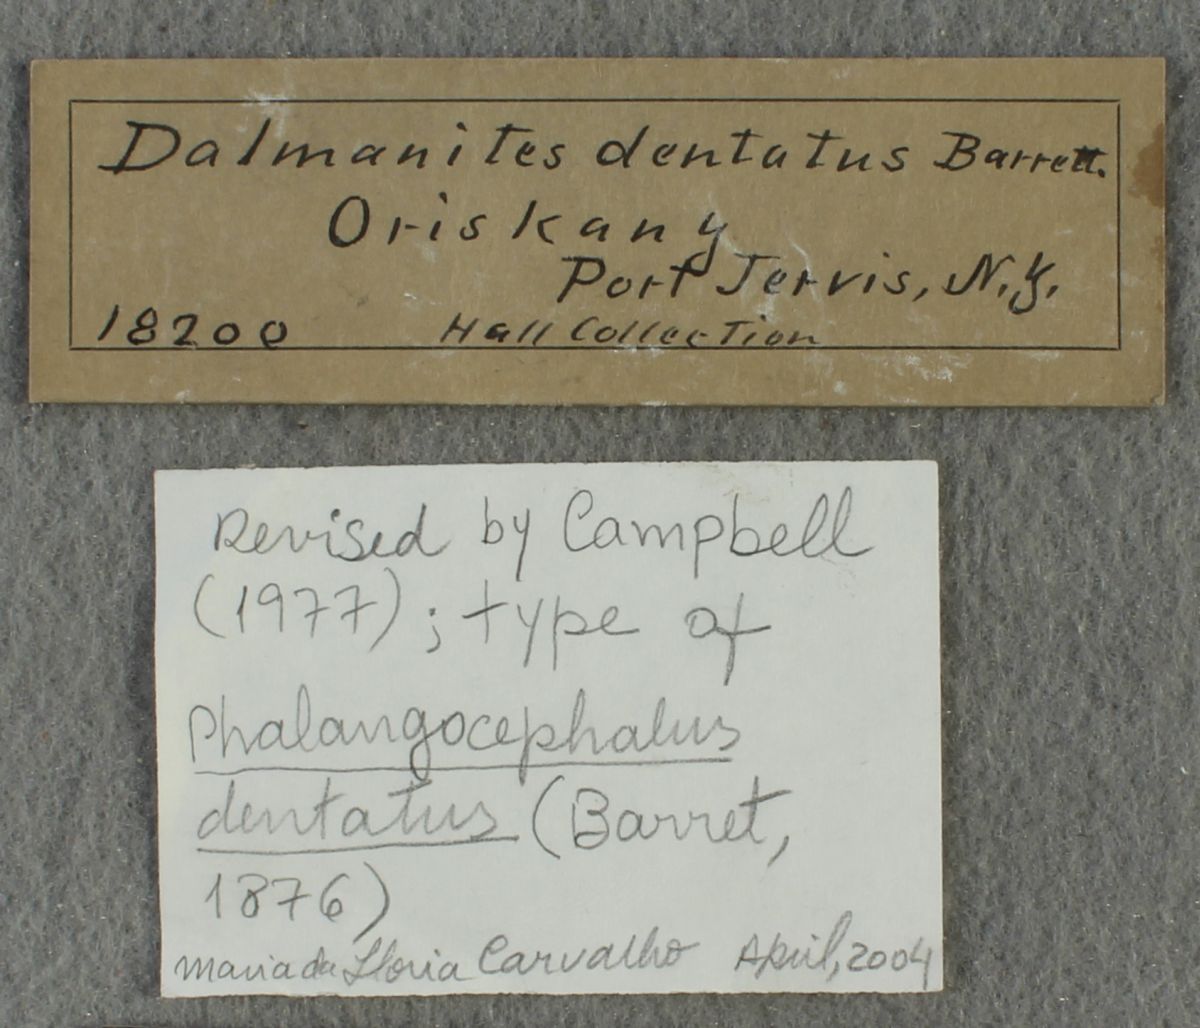 Dalmanites dentatus Barrett.
Oriskany
Port Jervis, N.Y.
18200 Hall Collection
Revised by Campbell
(1977); type of
Phalangocephalus
dentatus (Barret,
1876)
Maria da Gloria Carvalho April, 2004